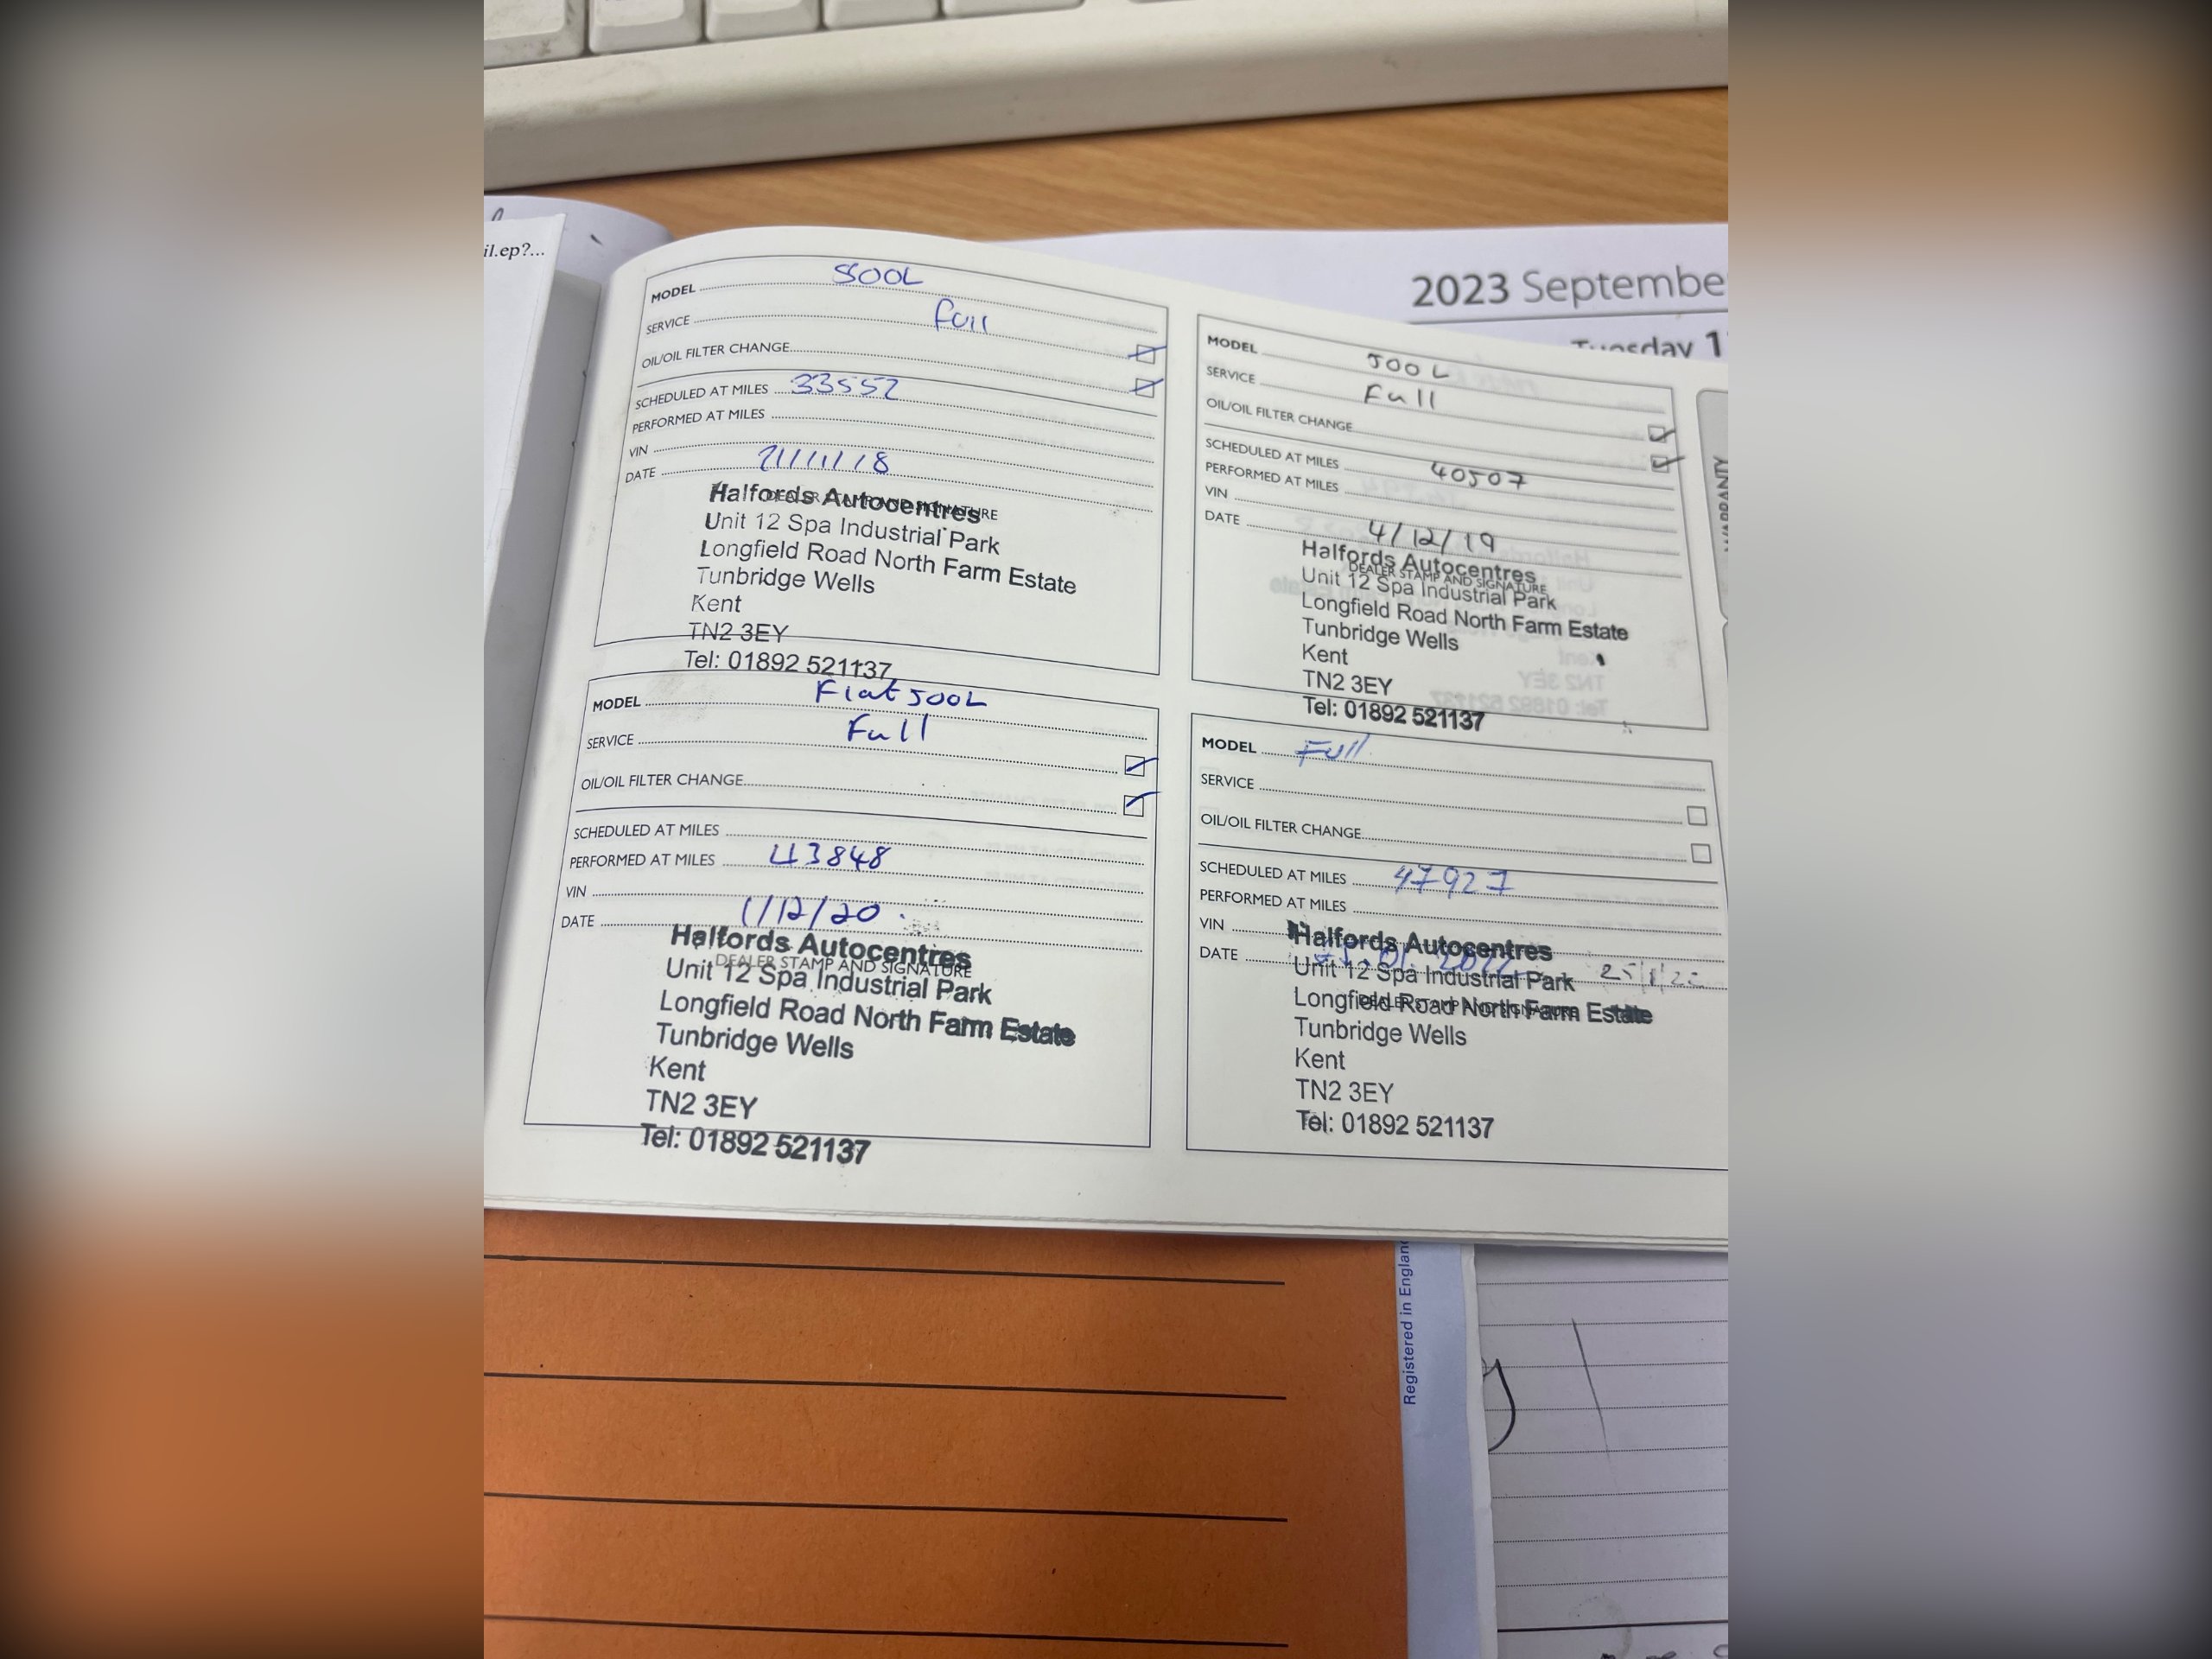 il.ep?...
2023 September
Tuesday 1
MODEL 500L
SERVICE Full
OIL/OIL FILTER CHANGE
SCHEDULED AT MILES 33552
PERFORMED AT MILES
VIN
DATE 21/11/18
DEALER STAMP AND SIGNATURE
Halfords Autocentres
Unit 12 Spa Industrial Park
Longfield Road North Farm Estate
Tunbridge Wells
Kent
TN2 3EY
Tel: 01892 521137
MODEL 500L
SERVICE Full
OIL/OIL FILTER CHANGE
SCHEDULED AT MILES 40507
PERFORMED AT MILES
VIN
DATE 4/12/19
DEALER STAMP AND SIGNATURE
Halfords Autocentres
Unit 12 Spa Industrial Park
Longfield Road North Farm Estate
Tunbridge Wells
Kent
TN2 3EY
Tel: 01892 521137
MODEL Fiat 500L
SERVICE Full
OIL/OIL FILTER CHANGE
SCHEDULED AT MILES
PERFORMED AT MILES 43848
VIN
DATE 1/12/20
DEALER STAMP AND SIGNATURE
Halfords Autocentres
Unit 12 Spa Industrial Park
Longfield Road North Farm Estate
Tunbridge Wells
Kent
TN2 3EY
Tel: 01892 521137
MODEL Full
SERVICE
OIL/OIL FILTER CHANGE
SCHEDULED AT MILES 47927
PERFORMED AT MILES
VIN
DATE 25/1/22
DEALER STAMP AND SIGNATURE
Halfords Autocentres
Unit 12 Spa Industrial Park
Longfield Road North Farm Estate
Tunbridge Wells
Kent
TN2 3EY
Tel: 01892 521137
WARRANTY
Registered in England